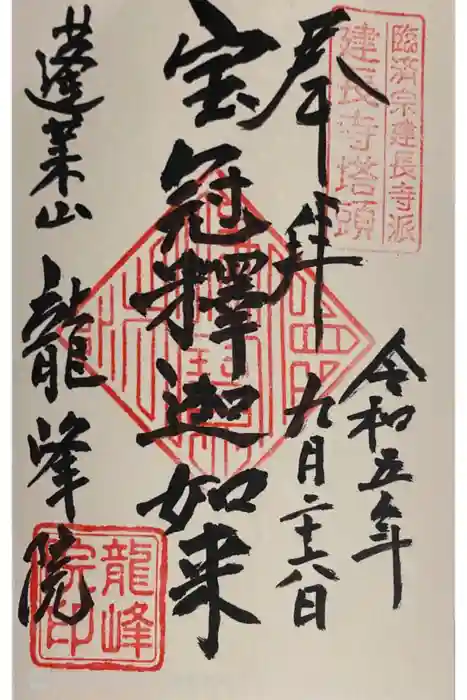 臨済宗建長寺派
建長寺塔頭
奉拝
令和五年
九月二十八日
宝冠釋迦如来
蓬莱山
龍峰院
龍峰
院印